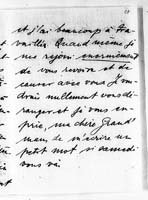 et j'ai beaucoup à tra-
vailler. Quand même je
me réjouis énormément
de vous revoir et de
causer avec vous. Je vou-
drais nullement vous dé-
ranger et je vous en
prie, ma chère Grand'
de m'écrire un
petit mot si samedi
vous va